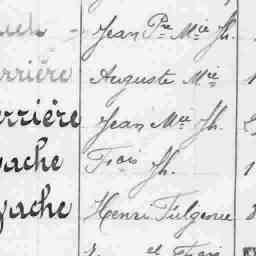 Jean Pre Mie Jh.
rrière Auguste Mie
errière Jean Mie Jh.
ache Frois Jh. 1
yache Henri Fulgence